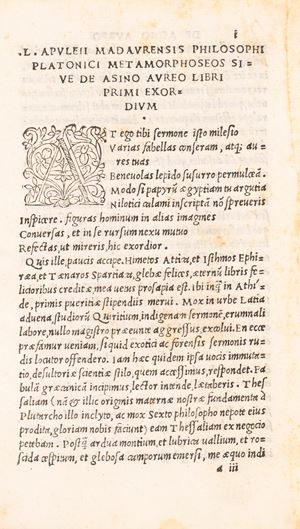 i
.L. APVLEII MADAVRENSIS PHILOSOPHI
PLATONICI METAMORPHOSEOS SI⸗
VE DE ASINO AVREO LIBRI
PRIMI EXOR⸗
DIVM
AT ego tibi sermone isto milesio
Varias fabellas conseram, atq; au⸗
res tuas
Beneuolas lepido susurro permulceã.
Modo si papyrũ ægyptiam tu argutia
Nilotici calami inscriptã nõ spreueris
Inspicere. figuras hominum in alias imagines
Conuersas, et in se rursum nexu mutuo
Refectas, ut mireris, hic exordior.
Quis ille, paucis accipe. Himetos Attica, et Isthmos Ephi⸗
rea, et Tænaros Spartiaca, glebæ felices, æternũ libris fe⸗
licioribus creditæ, mea uetus prosapia est. ibi inquã in Athi⸗
de, primis pueritiæ stipendiis merui. Mox in urbe Latia
aduena, studiorũ Quiritium, indigenam sermonẽ, ærumnali
labore, nullo magistro præeunte aggressus, excolui. En ecce
præfamur ueniam, si quid exotici ac forensis sermonis ru⸗
dis locutor offendero. Iam hæc quidem ipsa uocis immuta⸗
tio, desultoriæ scientiæ stilo, quem accessimus, respondet. Fa⸗
bulã græcanicã incipimus, lector intende, lætaberis. Thes⸗
saliam (nã & illic originis maternæ nostræ fundamenta à
Plutarcho illo inclyto, ac mox Sexto philosopho nepote eius
prodita, gloriam nobis faciunt) eam Thessaliam ex negocio
petebam. Postq̃ ardua montium, et lubrica uallium, et ro⸗
scida cæspitum, et glebosa camporum emersi, me æquo indi
a iii